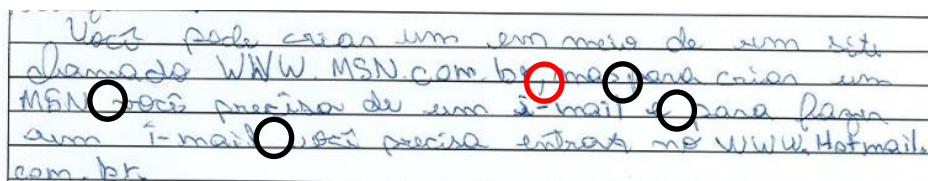 Você pode criar um em meio de um site
chamado WWW.MSN.com.br, mas para criar um
MSN você precisa de um i-mail e para fazer
um i-mail você precisa entrar no WWW.Hotmail.
com.br.